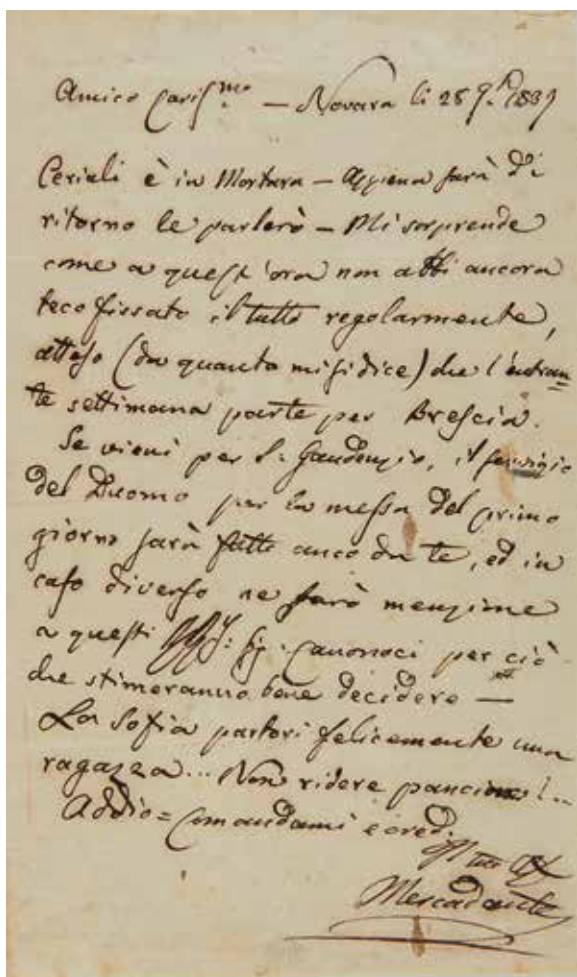 Amico Cariss.mo — Novara li 28 9.b 1839
Ceriali è in Mortara — Appena sarà di
ritorno le parlerò — Mi sorprende
come a quest'ora non abbi ancora
teco fissato il tutto regolarmente,
atteso (da quanto mi si dice) che l'entran=
te settimana parte per Brescia.
Se vieni per S. Gaudenzio, il servizio
del Duomo per la messa del primo
giorno sarà fatto anco da te, ed in
caso diverso ne farò menzione
a questi Sig. Canonoci per ciò
che stimeranno bene decidere —
La Sofia partorì felicemente una
ragazza... Non ridere pancione!..
Addio = Comandami e cred.
Il tuo
Mercadante